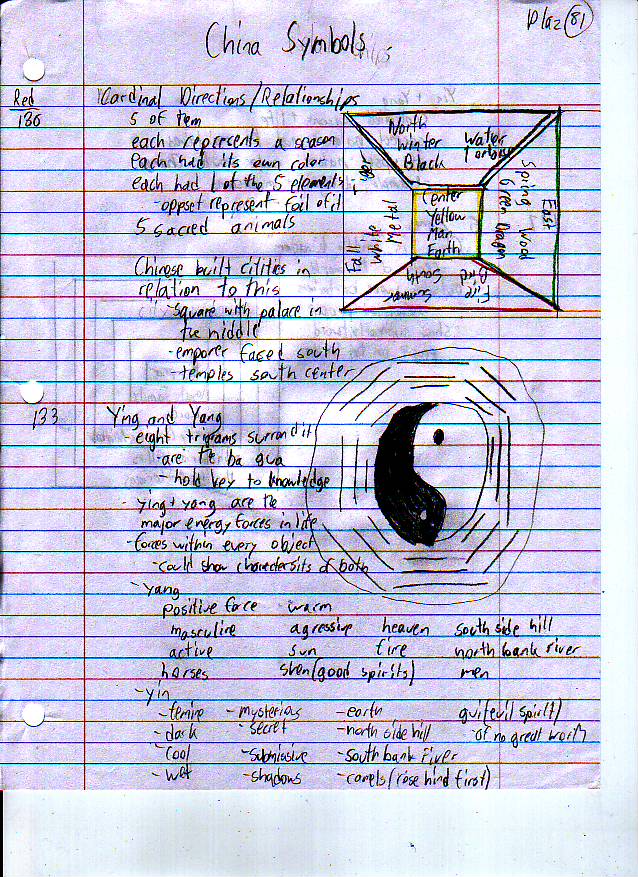 Plaz 81
China Symbols
Red Cardinal Directions/Relationships
136 5 of tem
each represents a season
each had its own color
each had 1 of the 5 elements
-oppset represent foil of it
5 sacred animals
North
Winter Water
Black Tortoise
Tiger
Fall White Metal
Center
Yellow
Man
Earth
East
Spring Wood
Green Dragon
South
Summer
Fire
Bird
Chinese built citities in
relation to this
-square with palace in
the middle
-emporer faced south
-temples south center
133 Ying and Yang
-eight trigrams surrond it
-are the ba gua
-hold key to knowledge
-ying + yang are the
major energy forces in life
-forces within every object
-could show charectersits of both
-yang
positive force warm
masculine agressive heaven south side hill
active sun fire north bank river
horses shen (good spirits) men
-yin
-femine -mysterious -earth gui (evil spirit)
-dark -secret -north side hill -of no great worth
-cool -submissive -south bank river
-wet -shadows -camels (rose hind first)